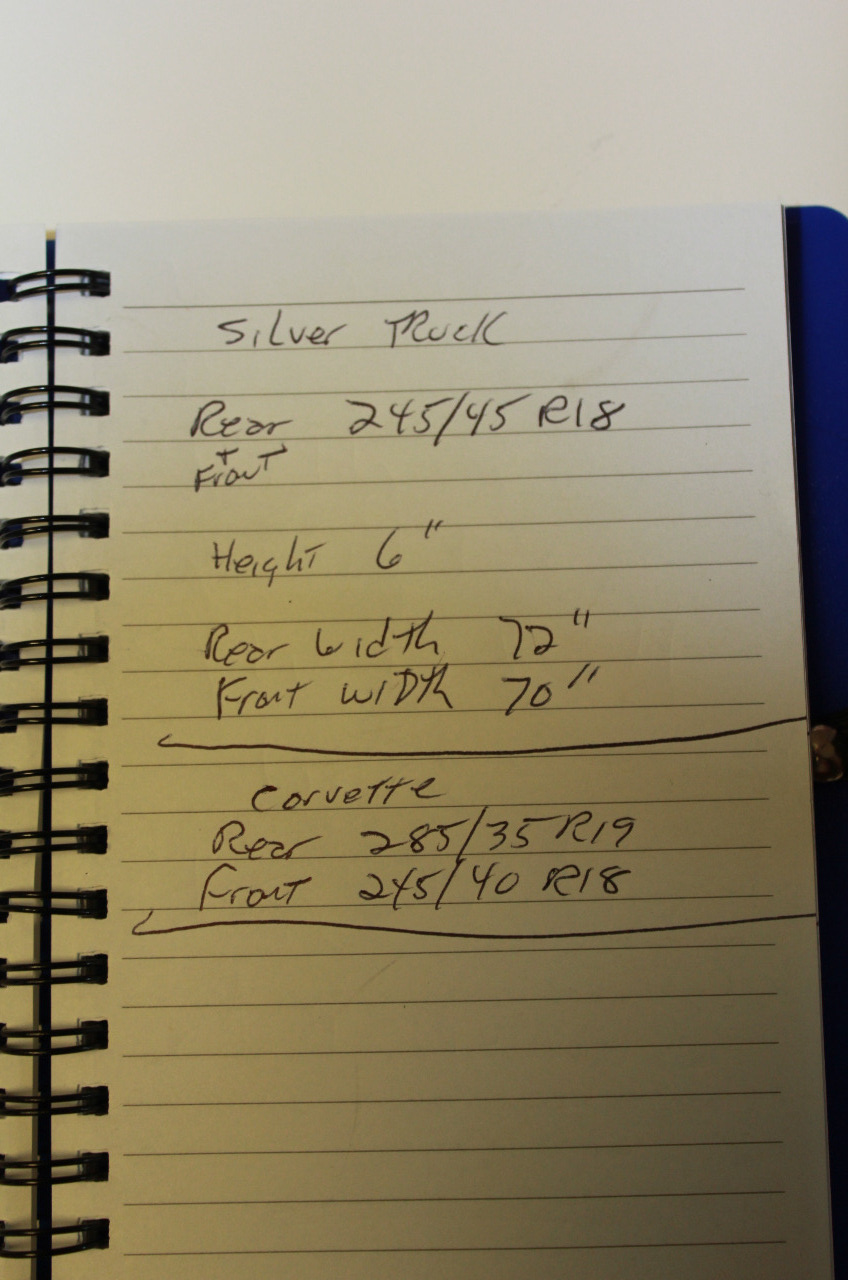 Silver Truck
Rear 245/45 R18
+
Front
Height 6"
Rear width 72"
Front WIDth 70"
Corvette
Rear 285/35 R19
Front 245/40 R18